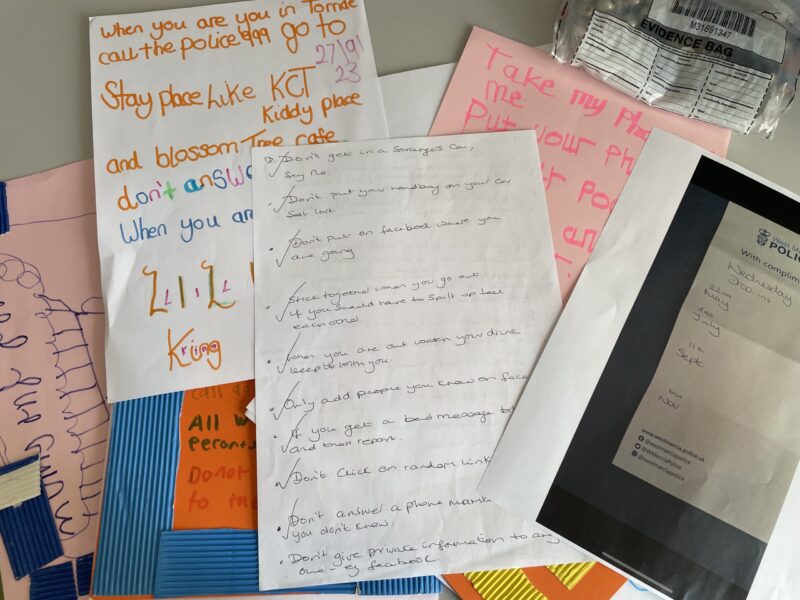 When you are you in Torrde
call the police 999 go to
27/9/
23
Stay place Like KCT
Kiddy place
and blossom Tree cafe
don't answ
When you are
LiLi
King
Don't get in a Strangers Car,
Say No.
Don't put your handbag on your Car
Seat lock
Don't put on facebook where you
are going
Stick together when you go out
if you should have to spilt up text
each other.
When you are out watch your drink
keep be with you.
Only add people you know on face
If you get a bad message bl
and then report.
Don't Click on random link
Don't answer a phone
you don't know.
Don't give private information to any
one eg facebook
call
All
Do not
to the
Take my Pho
me.
Put your Ph
Po
an
M31691347
EVIDENCE BAG
West M
POLIC
With complim
Wednesday
Drop ins
22nd
May
July
11th
Sept
Nov
www.westmercia.police.uk
@westmerciapolice
@WMerciaPolice
@westmerciapolice